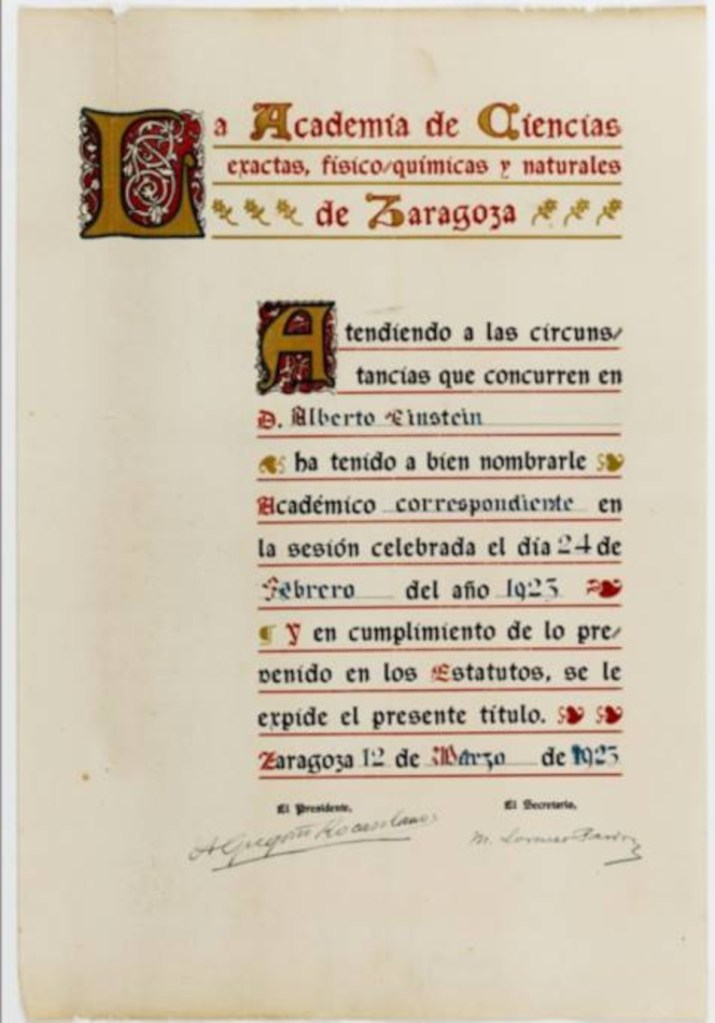 La Academia de Ciencias
exactas, físico-químicas y naturales
de Zaragoza
Atendiendo a las circuns-
tancias que concurren en
D. Alberto Einstein
ha tenido a bien nombrarle
Académico correspondiente en
la sesión celebrada el día 24 de
Febrero del año 1923
Y en cumplimiento de lo pre-
venido en los Estatutos, se le
expide el presente título.
Zaragoza 12 de Marzo de 1923
El Presidente, El Secretario,
A Gregorio Rocasolano M. Lorenzo Pardo